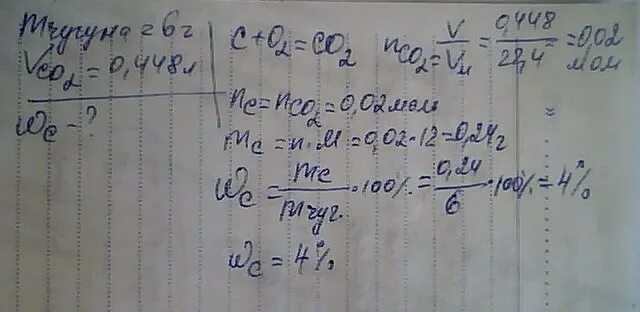 mчугуна = 6г
VCO₂ = 0,448л
ωc - ?
C + O₂ = CO₂ nCO₂ = V/Vм = 0,448/22,4 = 0,02 моль
nc = nCO₂ = 0,02 моль
mc = n·M = 0,02·12 = 0,24г
ωc = mc/mчуг. · 100% = 0,24/6 · 100% = 4%
ωc = 4%